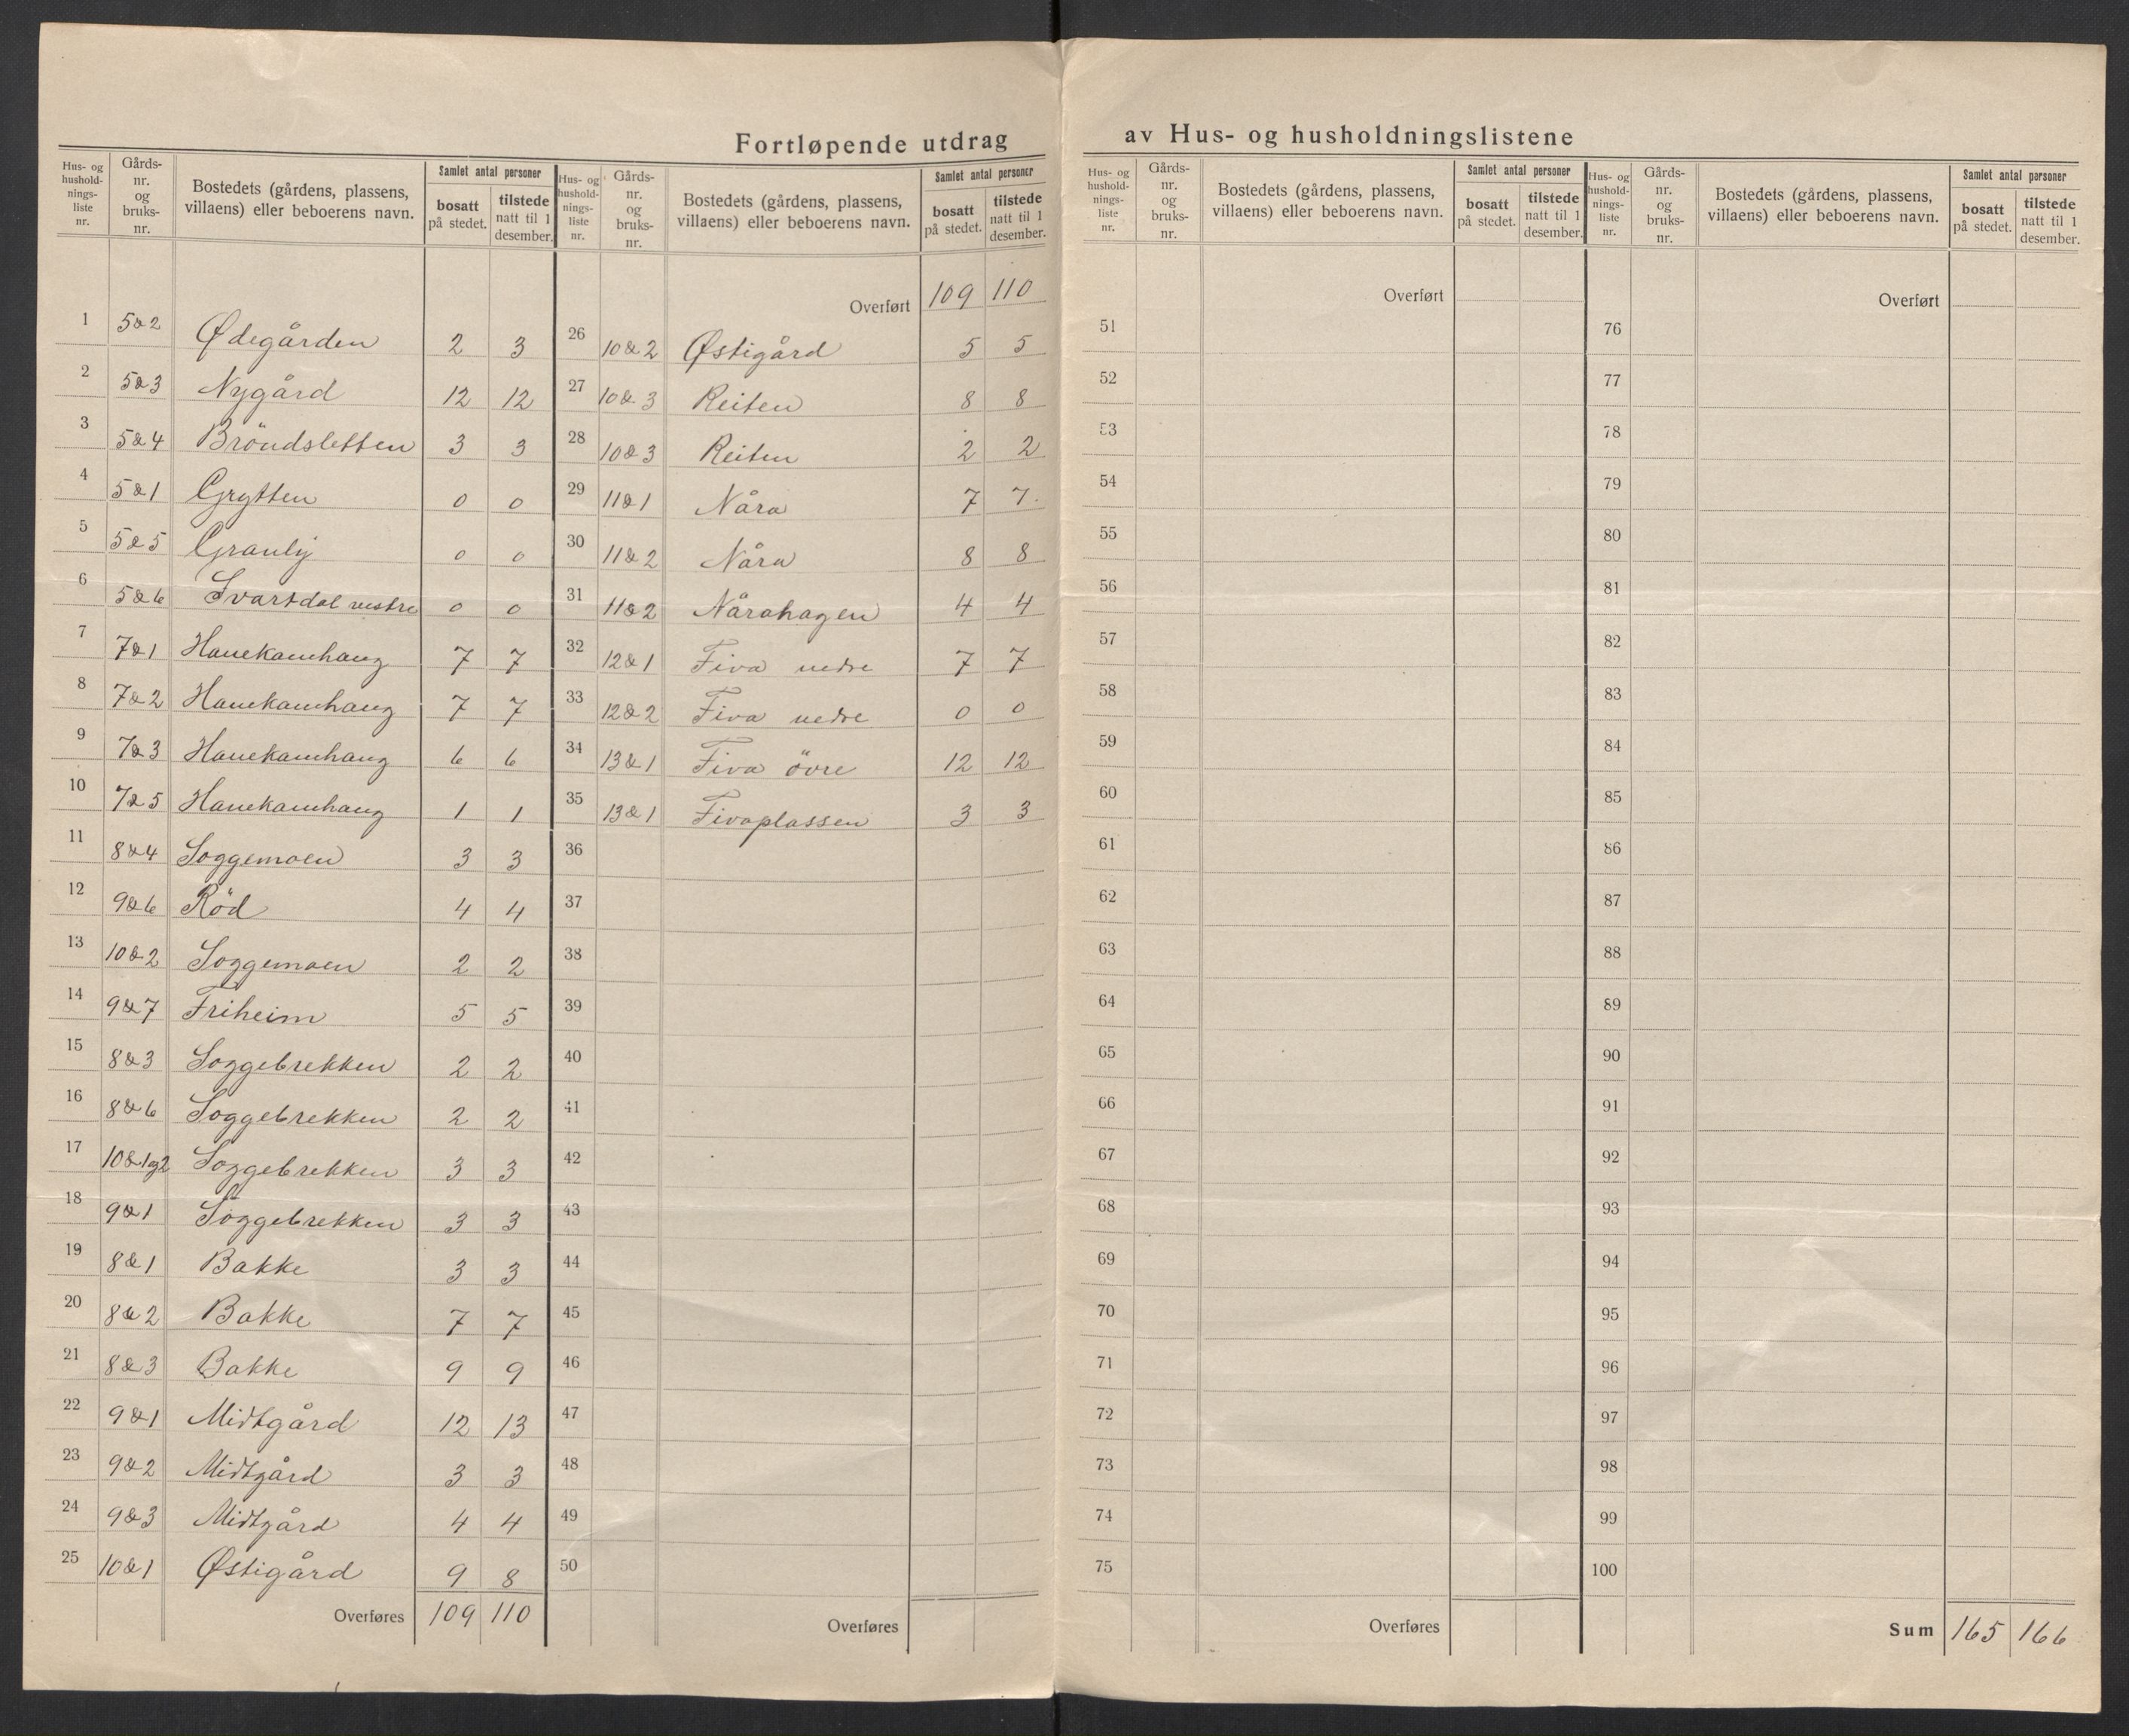 Fortløpende utdrag av Hus- og husholdningslistene
Hus- og hushold-nings-liste nr. Gårds-nr. og bruks-nr. Bostedets (gårdens, plassens, villaens) eller beboerens navn. Samlet antal personer bosatt på stedet. tilstede natt til 1 desember.
1 5&2 Ødegården 2 3
2 5&3 Nygård 12 12
3 5&4 Bröndsletten 3 3
4 5&1 Grytten 0 0
5 5&5 Granly 0 0
6 5&6 Svartdal vestre 0 0
7 7&1 Hanekamhaug 7 7
8 7&2 Hanekamhaug 7 7
9 7&3 Hanekamhaug 6 6
10 7&5 Hanekamhaug 1 1
11 8&4 Soggemoen 3 3
12 9&6 Röd 4 4
13 10&2 Soggemoen 2 2
14 9&7 Friheim 5 5
15 8&3 Soggebrekken 2 2
16 8&6 Soggebrekken 2 2
17 10&1og2 Soggebrekken 3 3
18 9&1 Soggebrekken 3 3
19 8&1 Bakke 3 3
20 8&2 Bakke 7 7
21 8&3 Bakke 9 9
22 9&1 Midtgård 12 13
23 9&2 Midtgård 3 3
24 9&3 Midtgård 4 4
25 10&1 Østigård 9 8
Overføres 109 110
Hus- og hushold-nings-liste nr. Gårds-nr. og bruks-nr. Bostedets (gårdens, plassens, villaens) eller beboerens navn. Samlet antal personer bosatt på stedet. tilstede natt til 1 desember.
Overført 109 110
26 10&2 Østigård 5 5
27 10&3 Reiten 8 8
28 10&3 Reiten 2 2
29 11&1 Nåra 7 7
30 11&2 Nåra 8 8
31 11&2 Nårahagen 4 4
32 12&1 Fiva nedre 7 7
33 12&2 Fiva nedre 0 0
34 13&1 Fiva övre 12 12
35 13&1 Fivaplassen 3 3
36
37
38
39
40
41
42
43
44
45
46
47
48
49
50
Overføres
Hus- og hushold-nings-liste nr. Gårds-nr. og bruks-nr. Bostedets (gårdens, plassens, villaens) eller beboerens navn. Samlet antal personer bosatt på stedet. tilstede natt til 1 desember.
Overført
51
52
53
54
55
56
57
58
59
60
61
62
63
64
65
66
67
68
69
70
71
72
73
74
75
Overføres
Hus- og hushold-nings-liste nr. Gårds-nr. og bruks-nr. Bostedets (gårdens, plassens, villaens) eller beboerens navn. Samlet antal personer bosatt på stedet. tilstede natt til 1 desember.
Overført
76
77
78
79
80
81
82
83
84
85
86
87
88
89
90
91
92
93
94
95
96
97
98
99
100
Sum 165 166